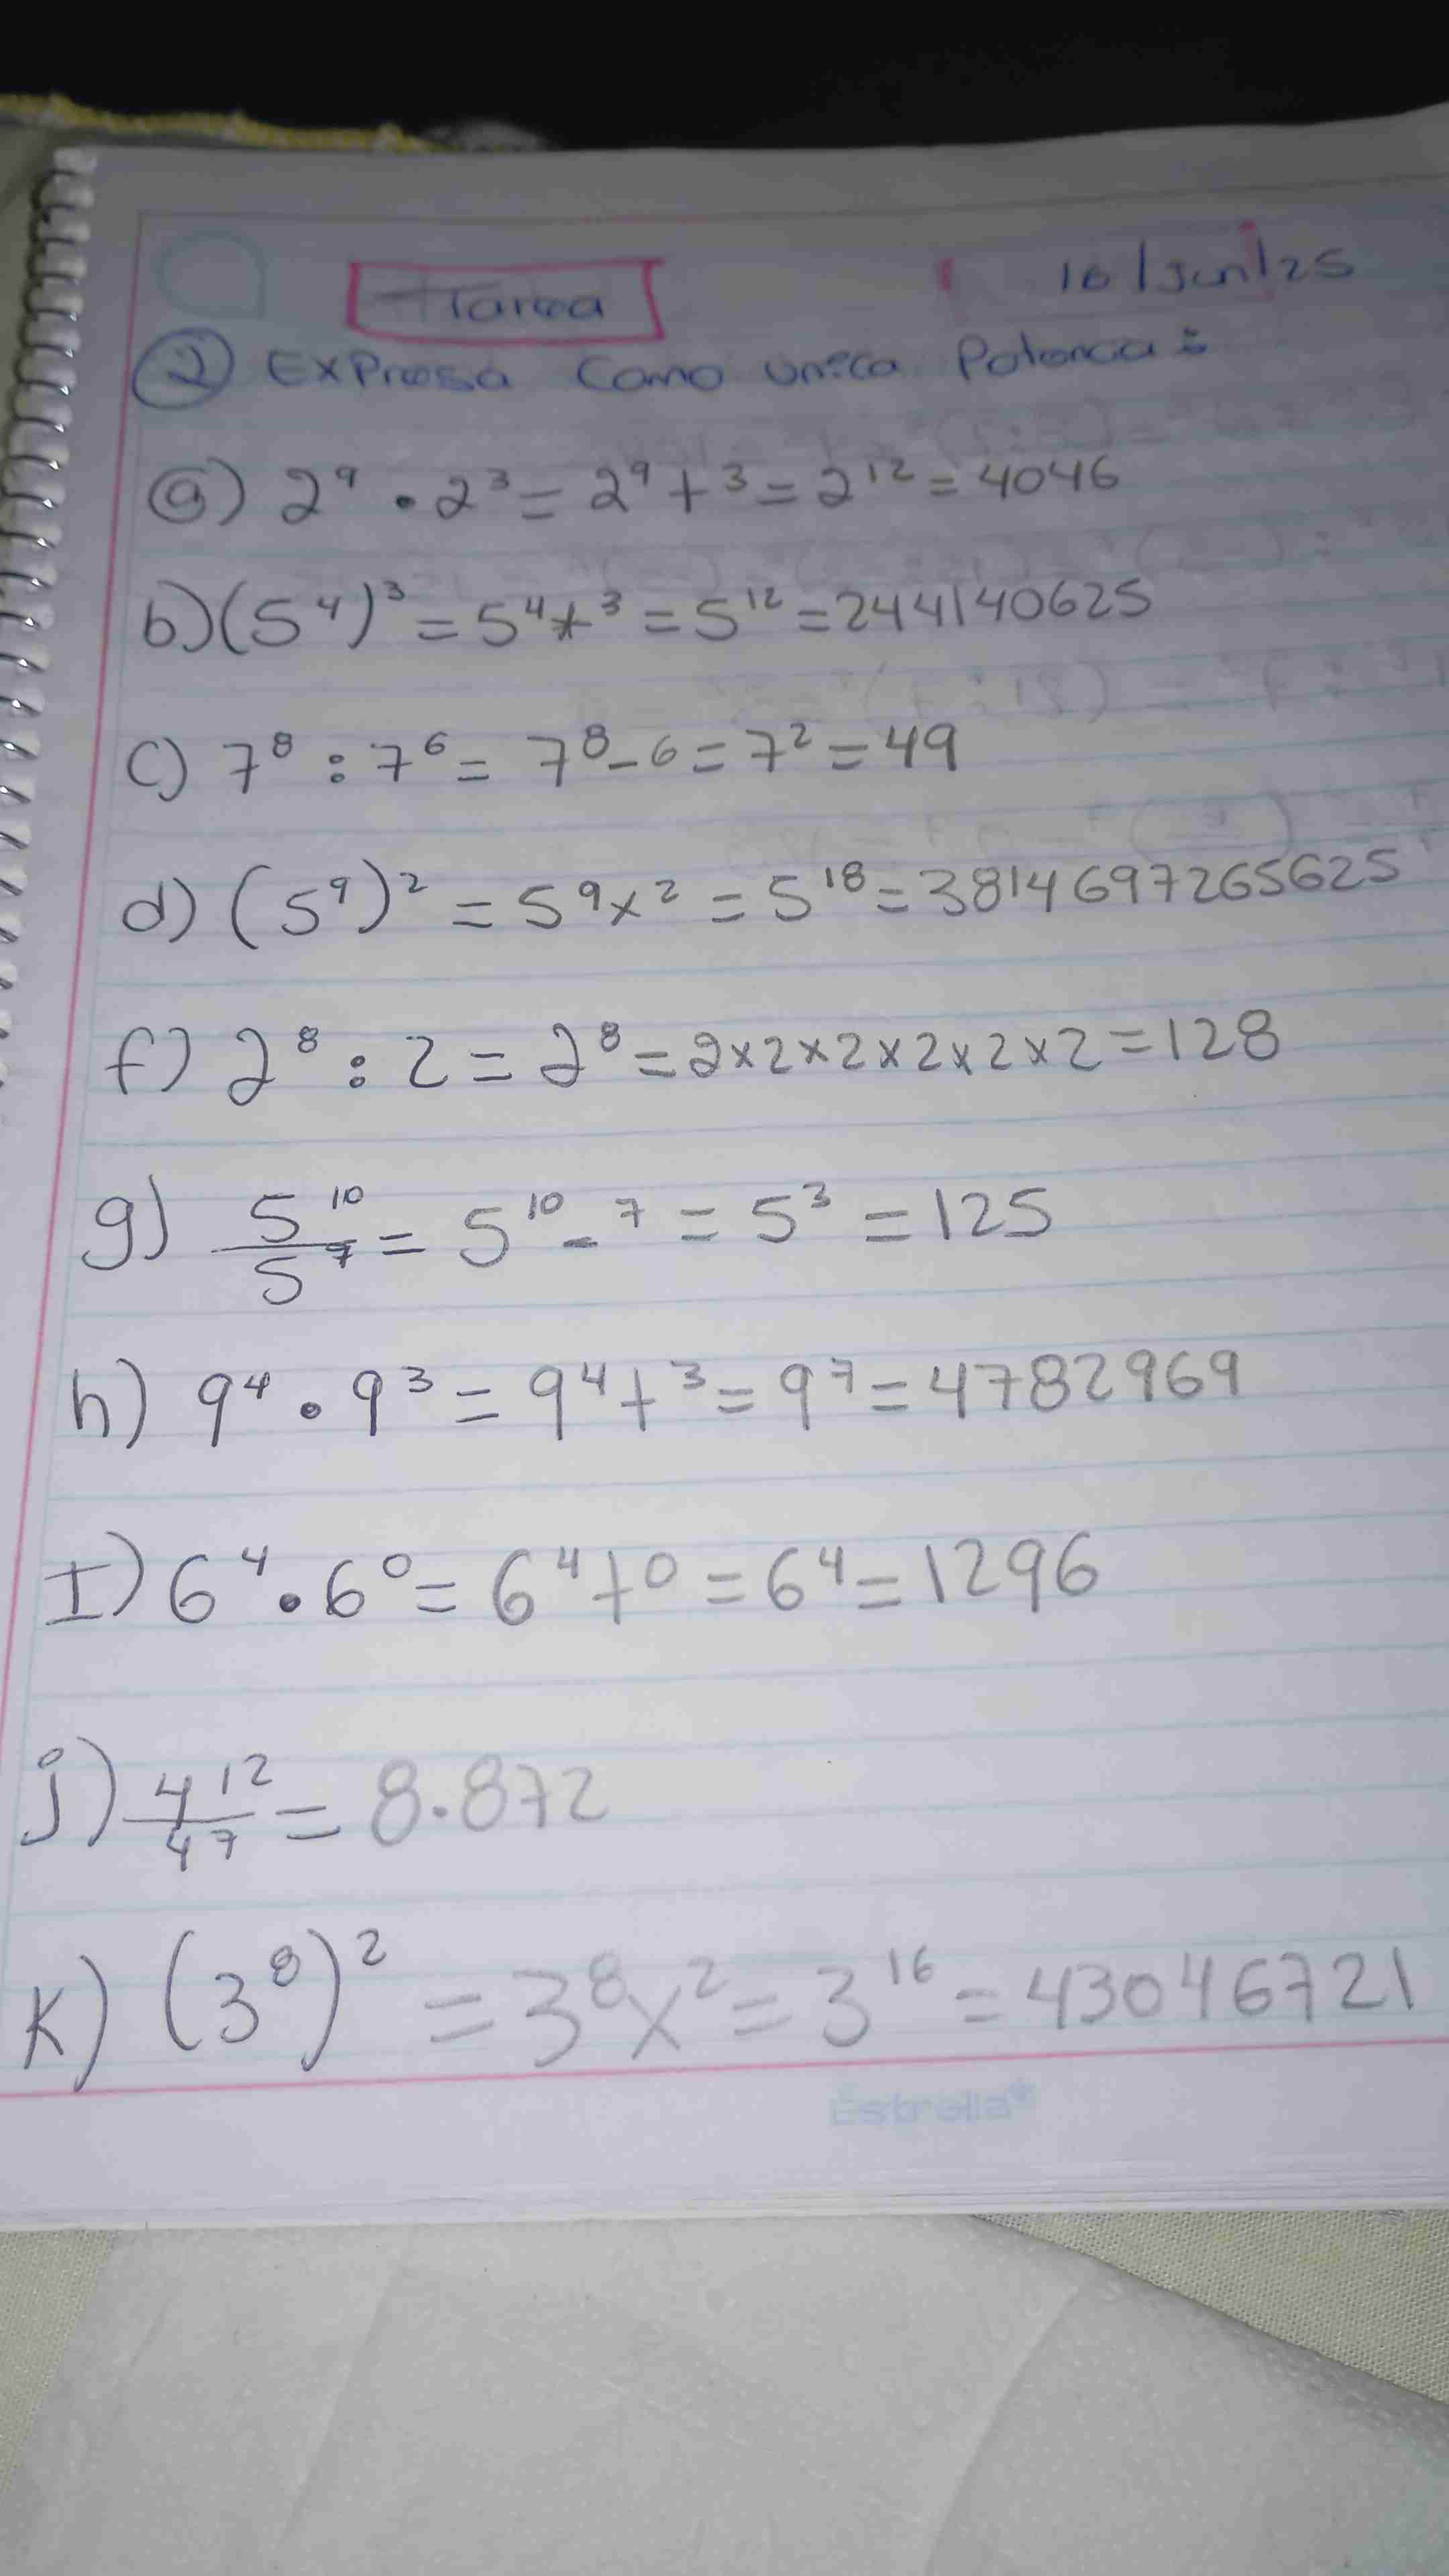 Tarea
16/Jun/25
2 Expresa Como unica Potencia:
a) 2⁹ • 2³ = 2⁹ + ³ = 2¹² = 4046
b) (5⁴)³ = 5⁴ x ³ = 5¹² = 244140625
c) 7⁸ : 7⁶ = 7⁸ - 6 = 7² = 49
d) (5⁹)² = 5⁹ x ² = 5¹⁸ = 3814697265625
f) 2⁸ : 2 = 2⁸ = 2x2x2x2x2x2 = 128
g) 5¹⁰/5⁷ = 5¹⁰ - ⁷ = 5³ = 125
h) 9⁴ • 9³ = 9⁴ + ³ = 9⁷ = 4782969
I) 6⁴ • 6⁰ = 6⁴ + ⁰ = 6⁴ = 1296
j) 4¹²/4⁷ = 8.872
K) (3⁸)² = 3⁸ x ² = 3¹⁶ = 43046721
Estrella